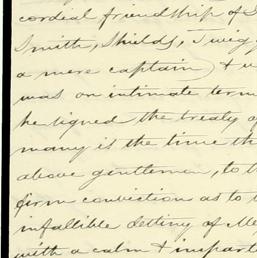 cordial friendship of
Smith, Shields, Twigg
a mere captain) & w
was on intimate term
he signed the treaty of
many is the time th
above gentlemen, to h
firm conviction as to
infallible setting of Me
with a calm & impart